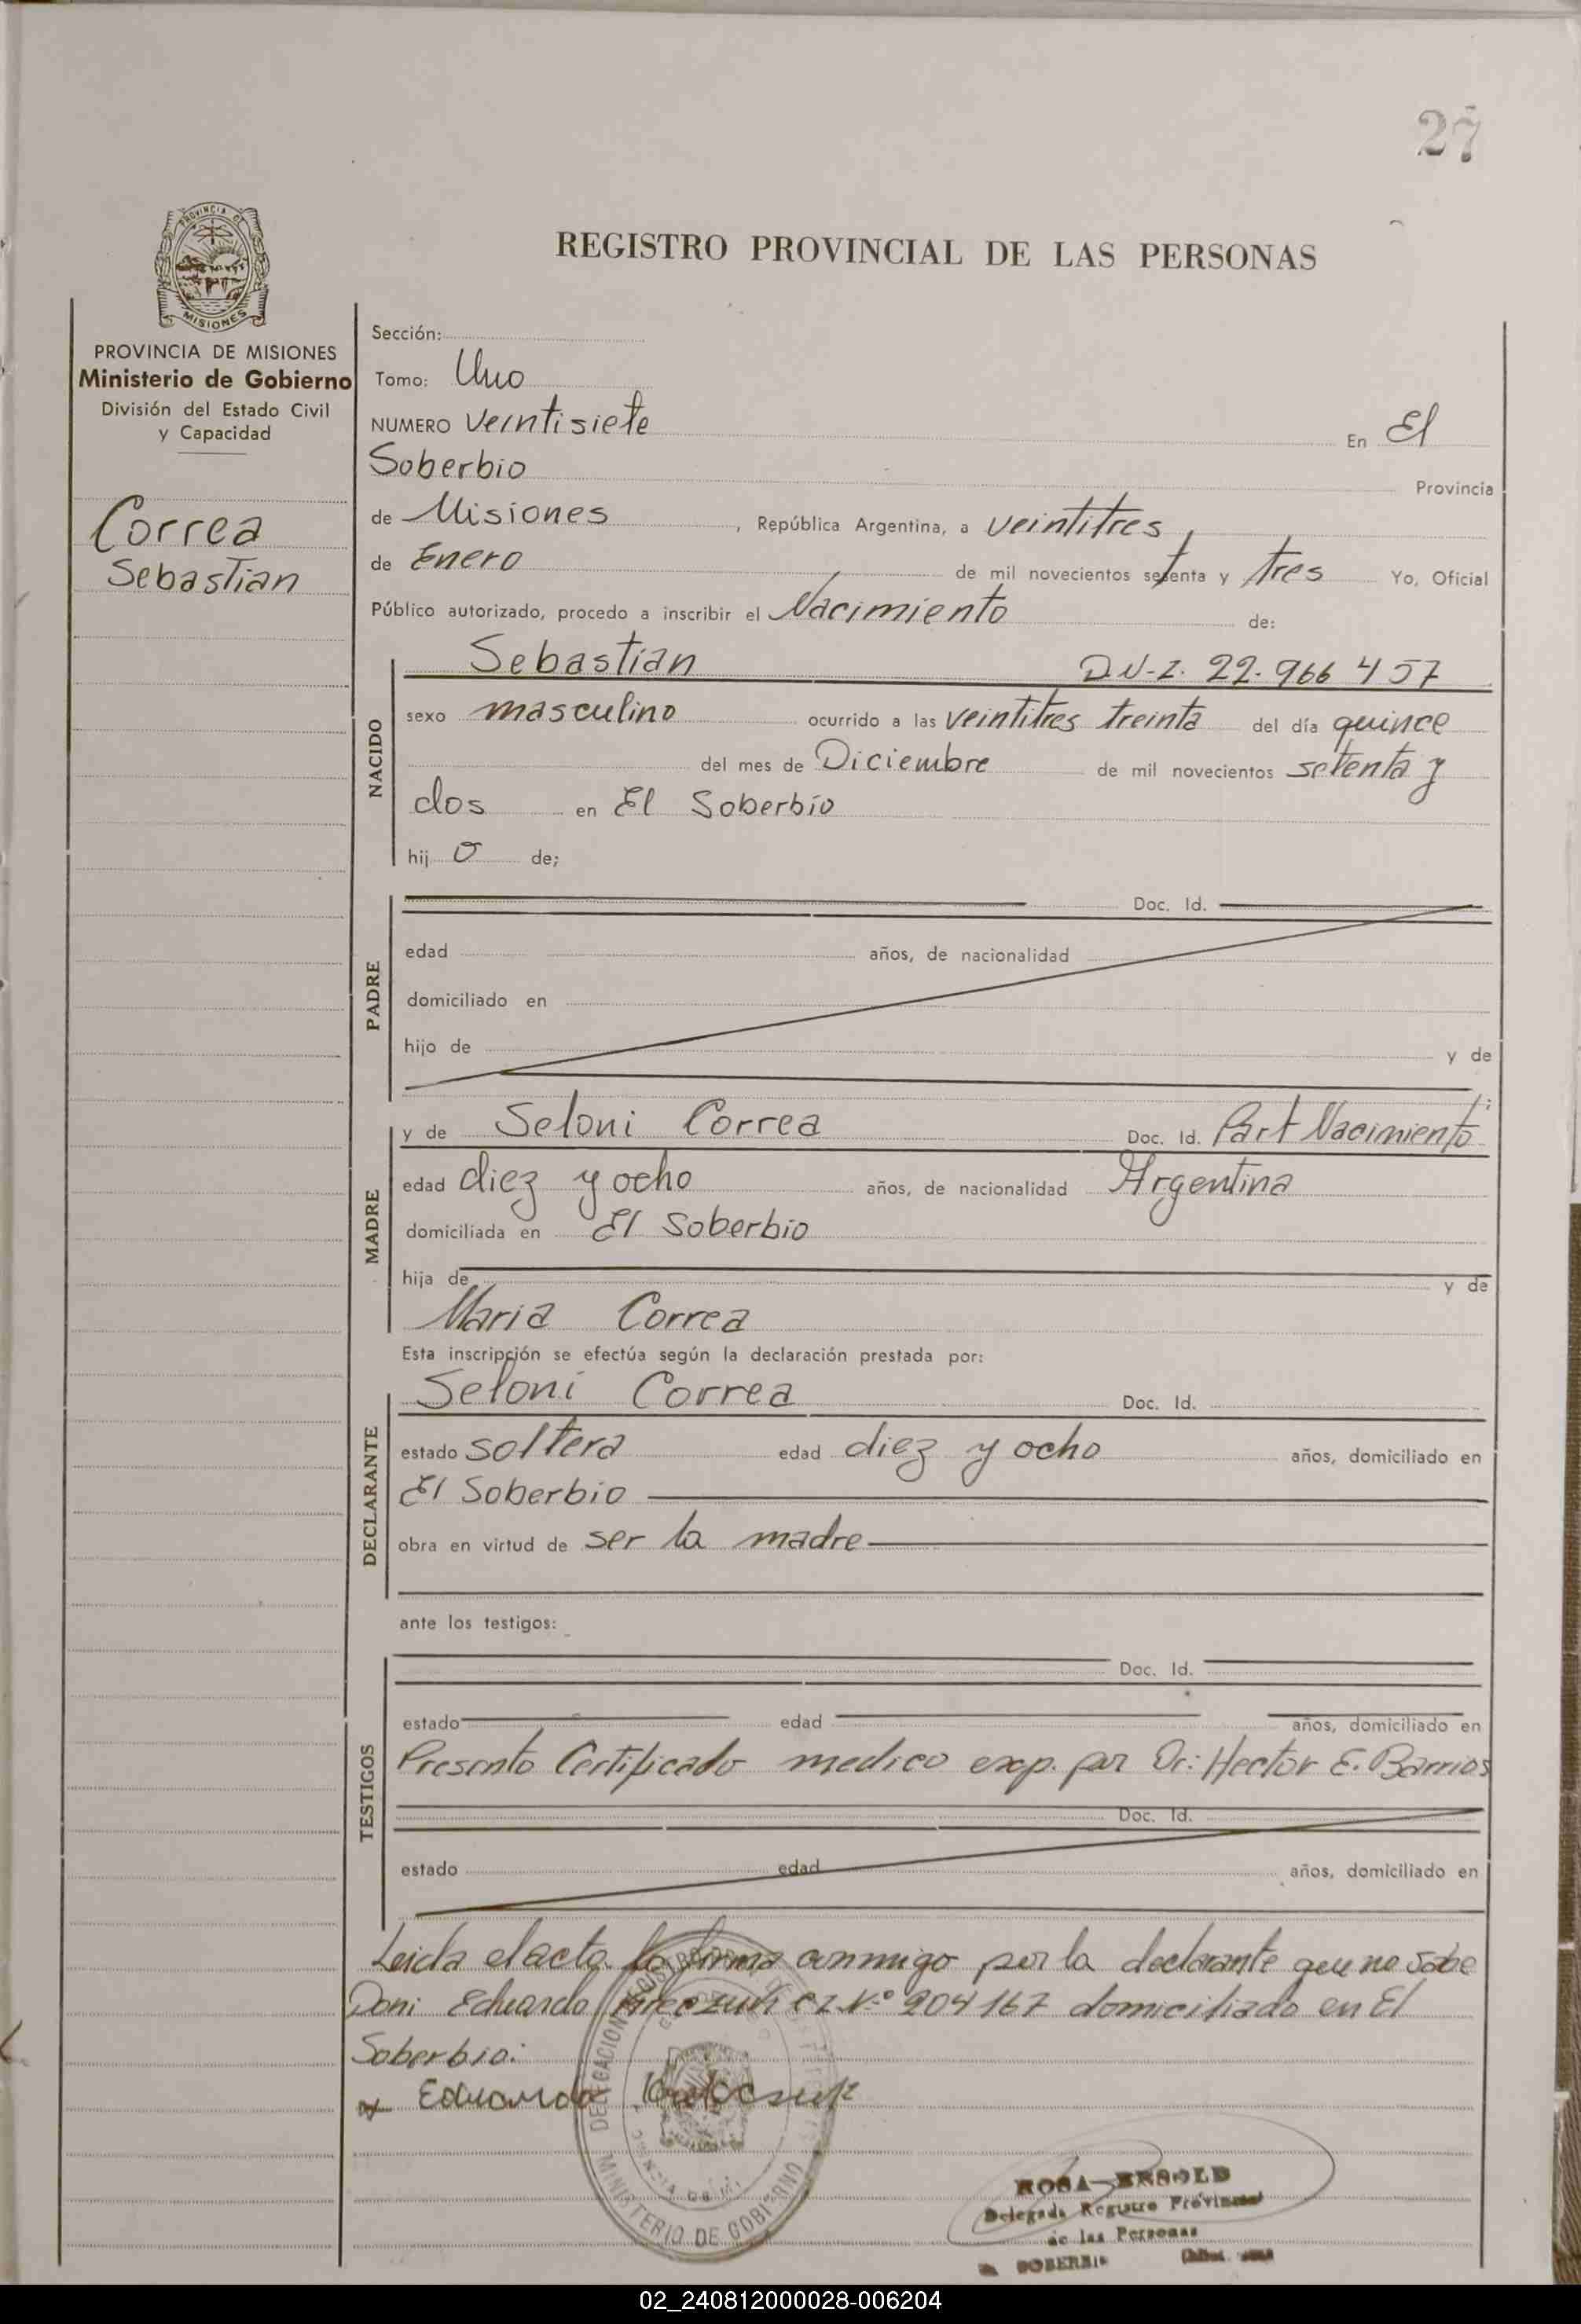 27
PROVINCIA DE
MISIONES
REGISTRO PROVINCIAL DE LAS PERSONAS
PROVINCIA DE MISIONES
Ministerio de Gobierno
División del Estado Civil
y Capacidad
Correa
Sebastian
Sección:
Tomo: Uno
NUMERO veintisiete En El
Soberbio Provincia
de Misiones, República Argentina, a veintitres
de Enero de mil novecientos setenta y tres Yo, Oficial
Público autorizado, procedo a inscribir el Nacimiento de:
NACIDO
Sebastian D.N.I. 22.966 457
sexo masculino ocurrido a las veintitres treinta del día quince
del mes de Diciembre de mil novecientos setenta y
dos en El Soberbio
hij o de;
PADRE
Doc. Id.
edad años, de nacionalidad
domiciliado en
hijo de y de
MADRE
y de Seloni Correa Doc. Id. Part Nacimiento
edad diez y ocho años, de nacionalidad Argentina
domiciliada en El Soberbio
hija de y de
Maria Correa
Esta inscripción se efectúa según la declaración prestada por:
DECLARANTE
Seloni Correa Doc. Id.
estado soltera edad diez y ocho años, domiciliado en
El Soberbio
obra en virtud de ser la madre
ante los testigos:
TESTIGOS
Doc. Id.
estado edad años, domiciliado en
Presento Certificado medico exp. por Dr: Hector E. Barrios
Doc. Id.
estado edad años, domiciliado en
Leida el acta la firma conmigo por la declarante que no sabe
Doni Eduardo CI Nº 904167 domiciliado en El
Soberbio:
Eduardo
DELEGACION
MINISTERIO DE GOBIERNO
ROSA
Delegada Registro Provincial
de las Personas
SOBERBIO
02_240812000028-006204